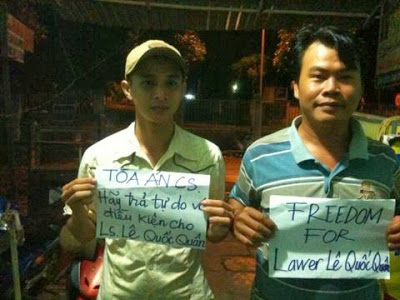 TÒA ÁN CS:
Hãy Trả Tự do vô
điều kiện cho
Ls. Lê Quốc Quân
FREEDOM
FOR
Lawer Lê Quốc Quân